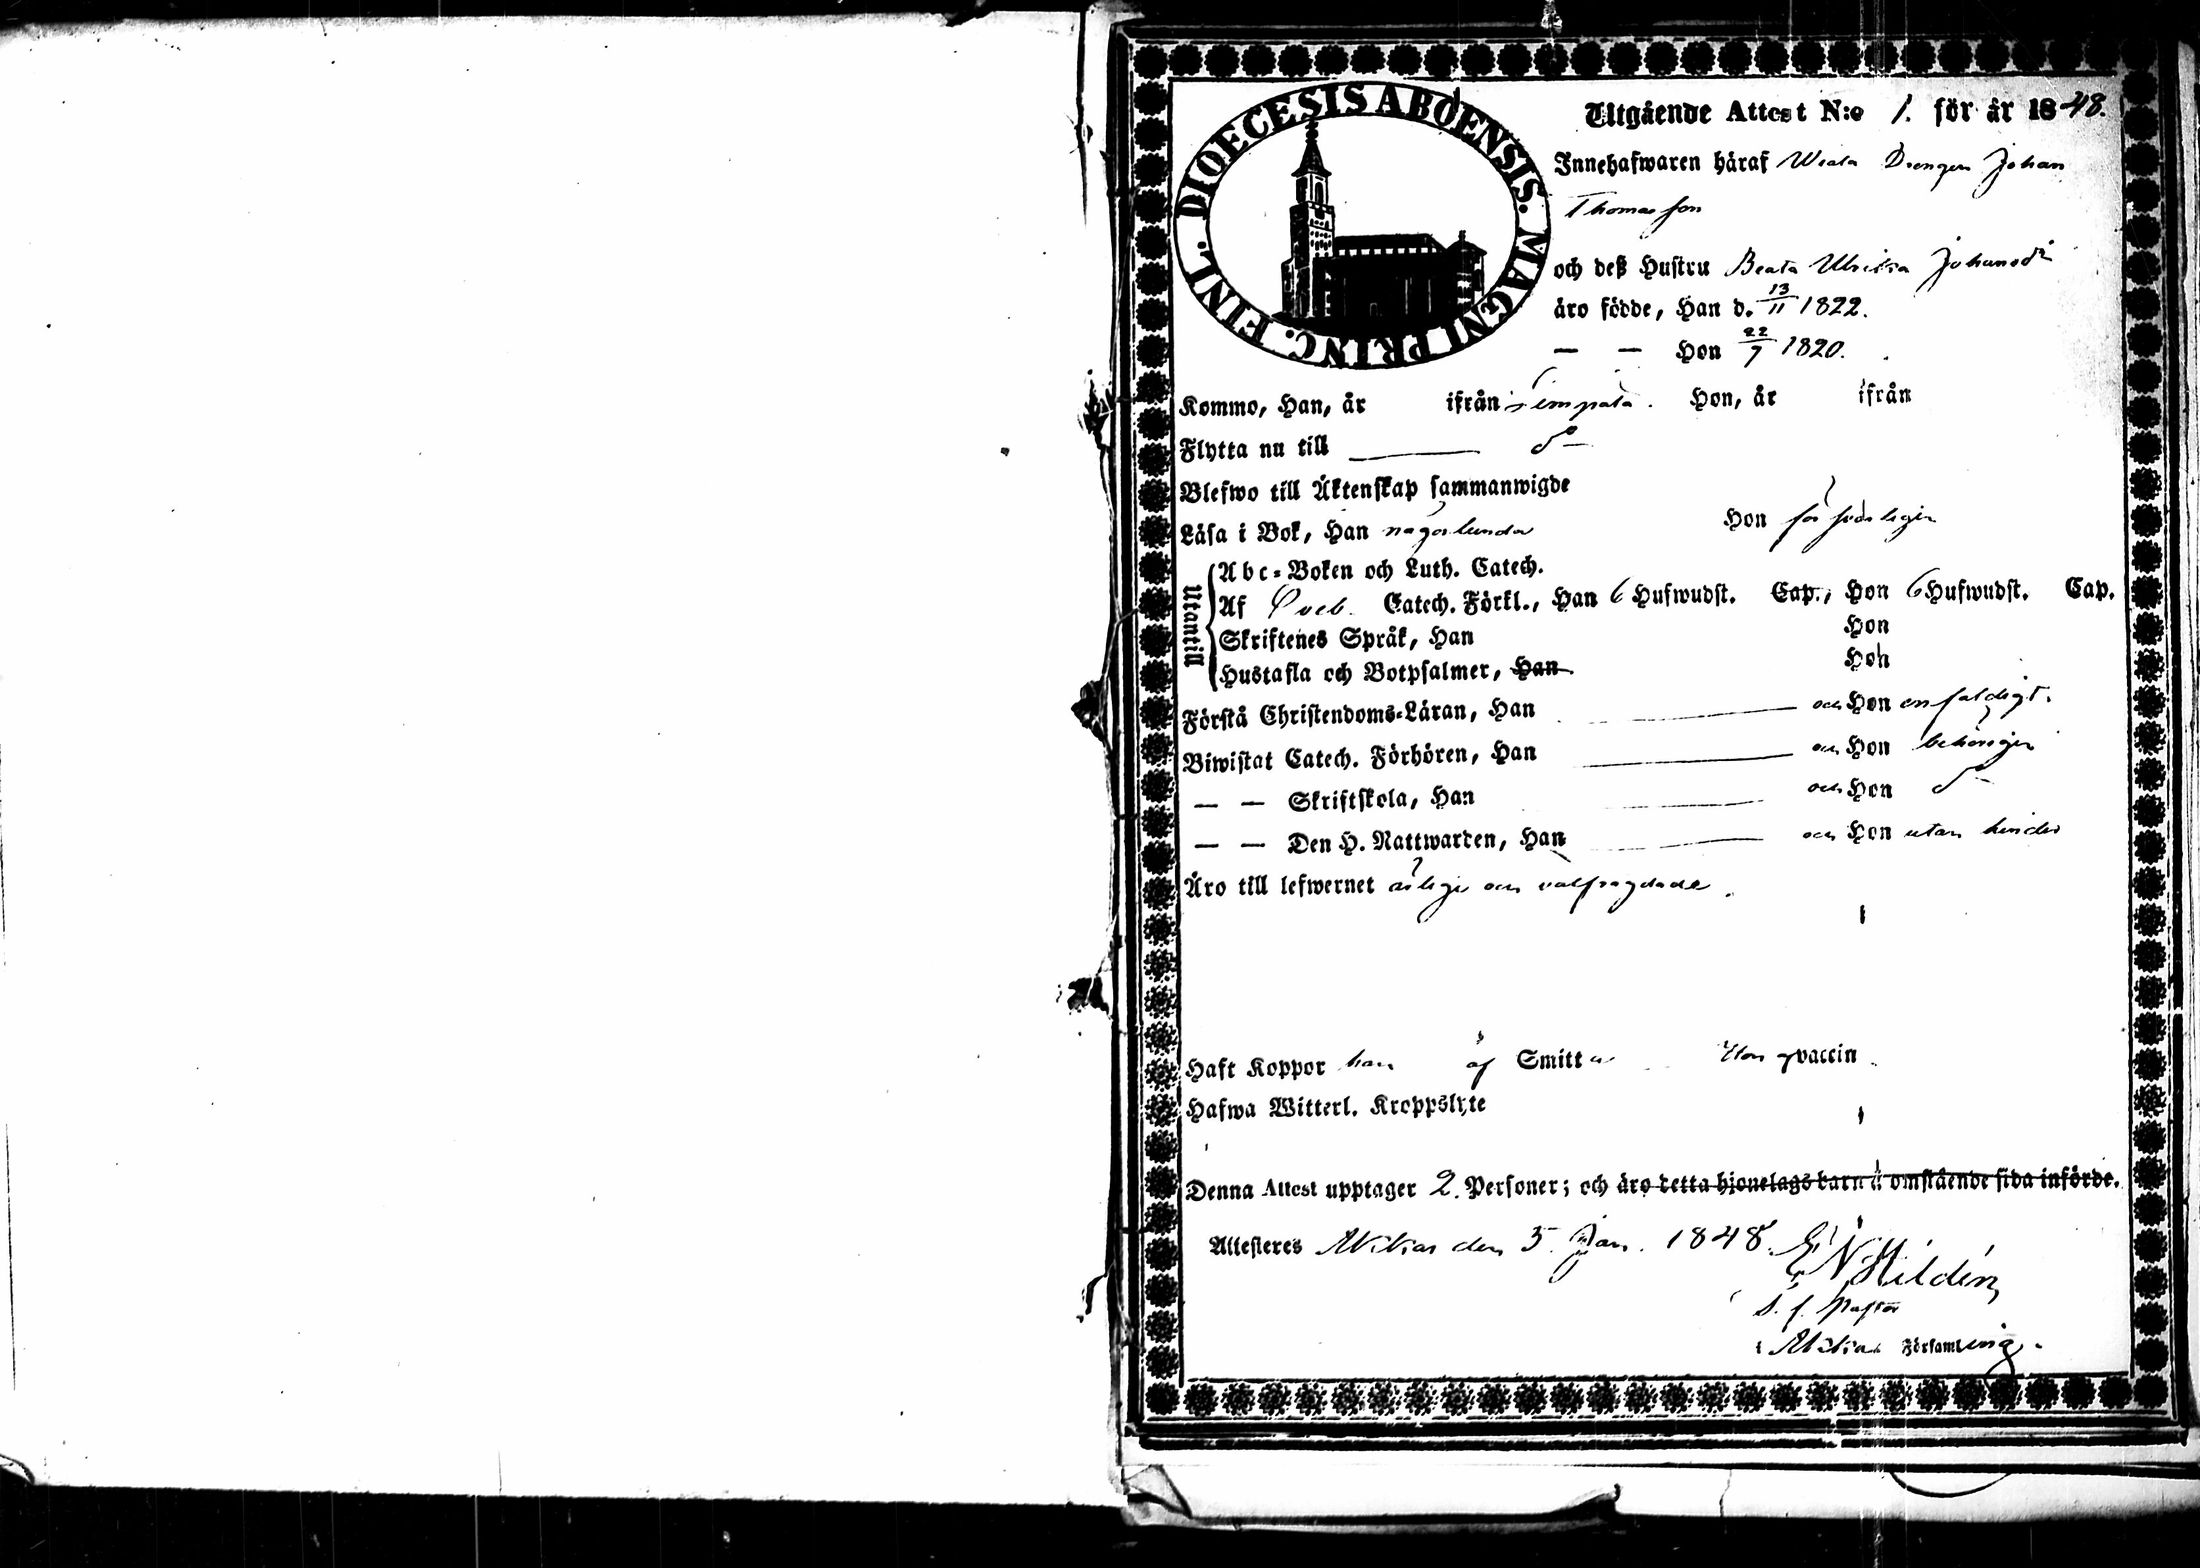 DIOECESIS ABOENSIS. MAGNI PRINC. FINL.
Utgående Attest N:o 1. för år 1848.
Innehafwaren häraf Drengen Johan
Thomasson
och deß Hustru Beata Ulrika Johansdr
äro födde, Han d. 13/11 1822.
— — Hon 22/7 1820.
Kommo, Han, år ifrån Hon, år ifrån
Flytta nu till d:o
Blefwo till Äktenskap sammanwigde
Läsa i Bok, Han någorlunda Hon försvarligen
Utantill
Abc-Boken och Luth. Catech.
Af Sveb. Catech. Förkl., Han 6 Hufwudst. Cap., Hon 6 Hufwudst. Cap.
Skriftenes Språk, Han Hon
Hustafla och Botpsalmer, Han Hon
Förstå Christendoms-Läran, Han och Hon enfaldigt.
Biwistat Catech. Förhören, Han och Hon behörigen
— — Skriftskola, Han och Hon d:o
— — Den H. Nattwarden, Han och Hon utan hinder
Äro till lefwernet ärlige och välfrägdade.
Haft Koppor han af Smitta Hon vaccin
Hafwa Witterl. Kroppslyte
Denna Attest upptager 2. Personer; och äro detta hjonelags barn å omstående sida införde.
Attesteres den 5. Jan. 1848. Hildén
Pastor
i Församling.